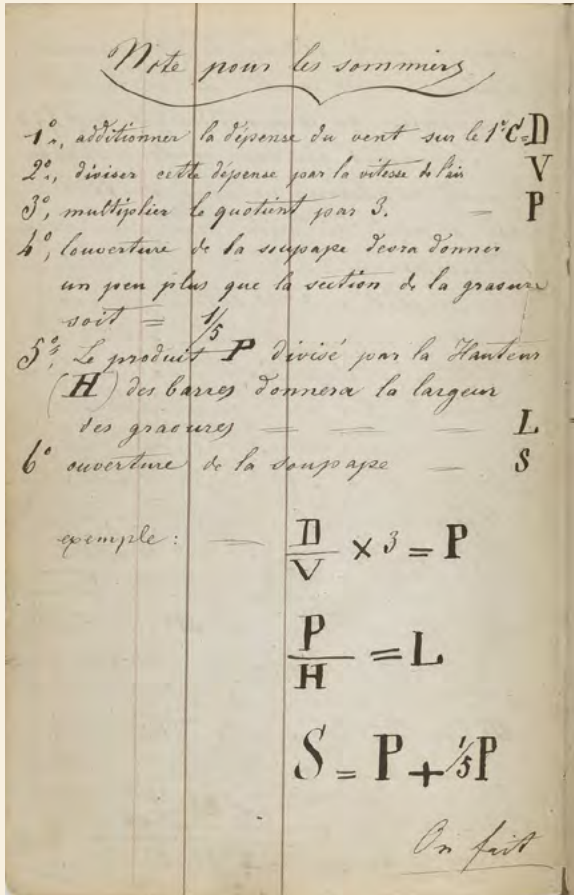 Note pour les sommiers
1º, additionner la dépense du vent sur le 1er C = D
2º, diviser cette dépense par la vitesse de l'air V
3º, multiplier le quotient par 3. — P
4º, l'ouverture de la soupape devra donner
un peu plus que la section de la gravure
soit = 1/5
5º, Le produit P divisé par la Hauteur
(H) des barres donnera la largeur
des gravures — — — L
6º ouverture de la soupape — S
exemple : — D/V × 3 = P
P/H = L
S = P + 1/5 P
On fait